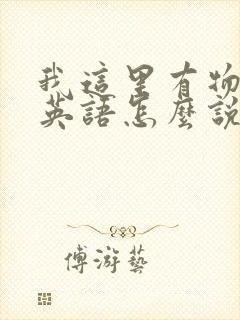 我這里有物
英語怎麼說
傅游藝